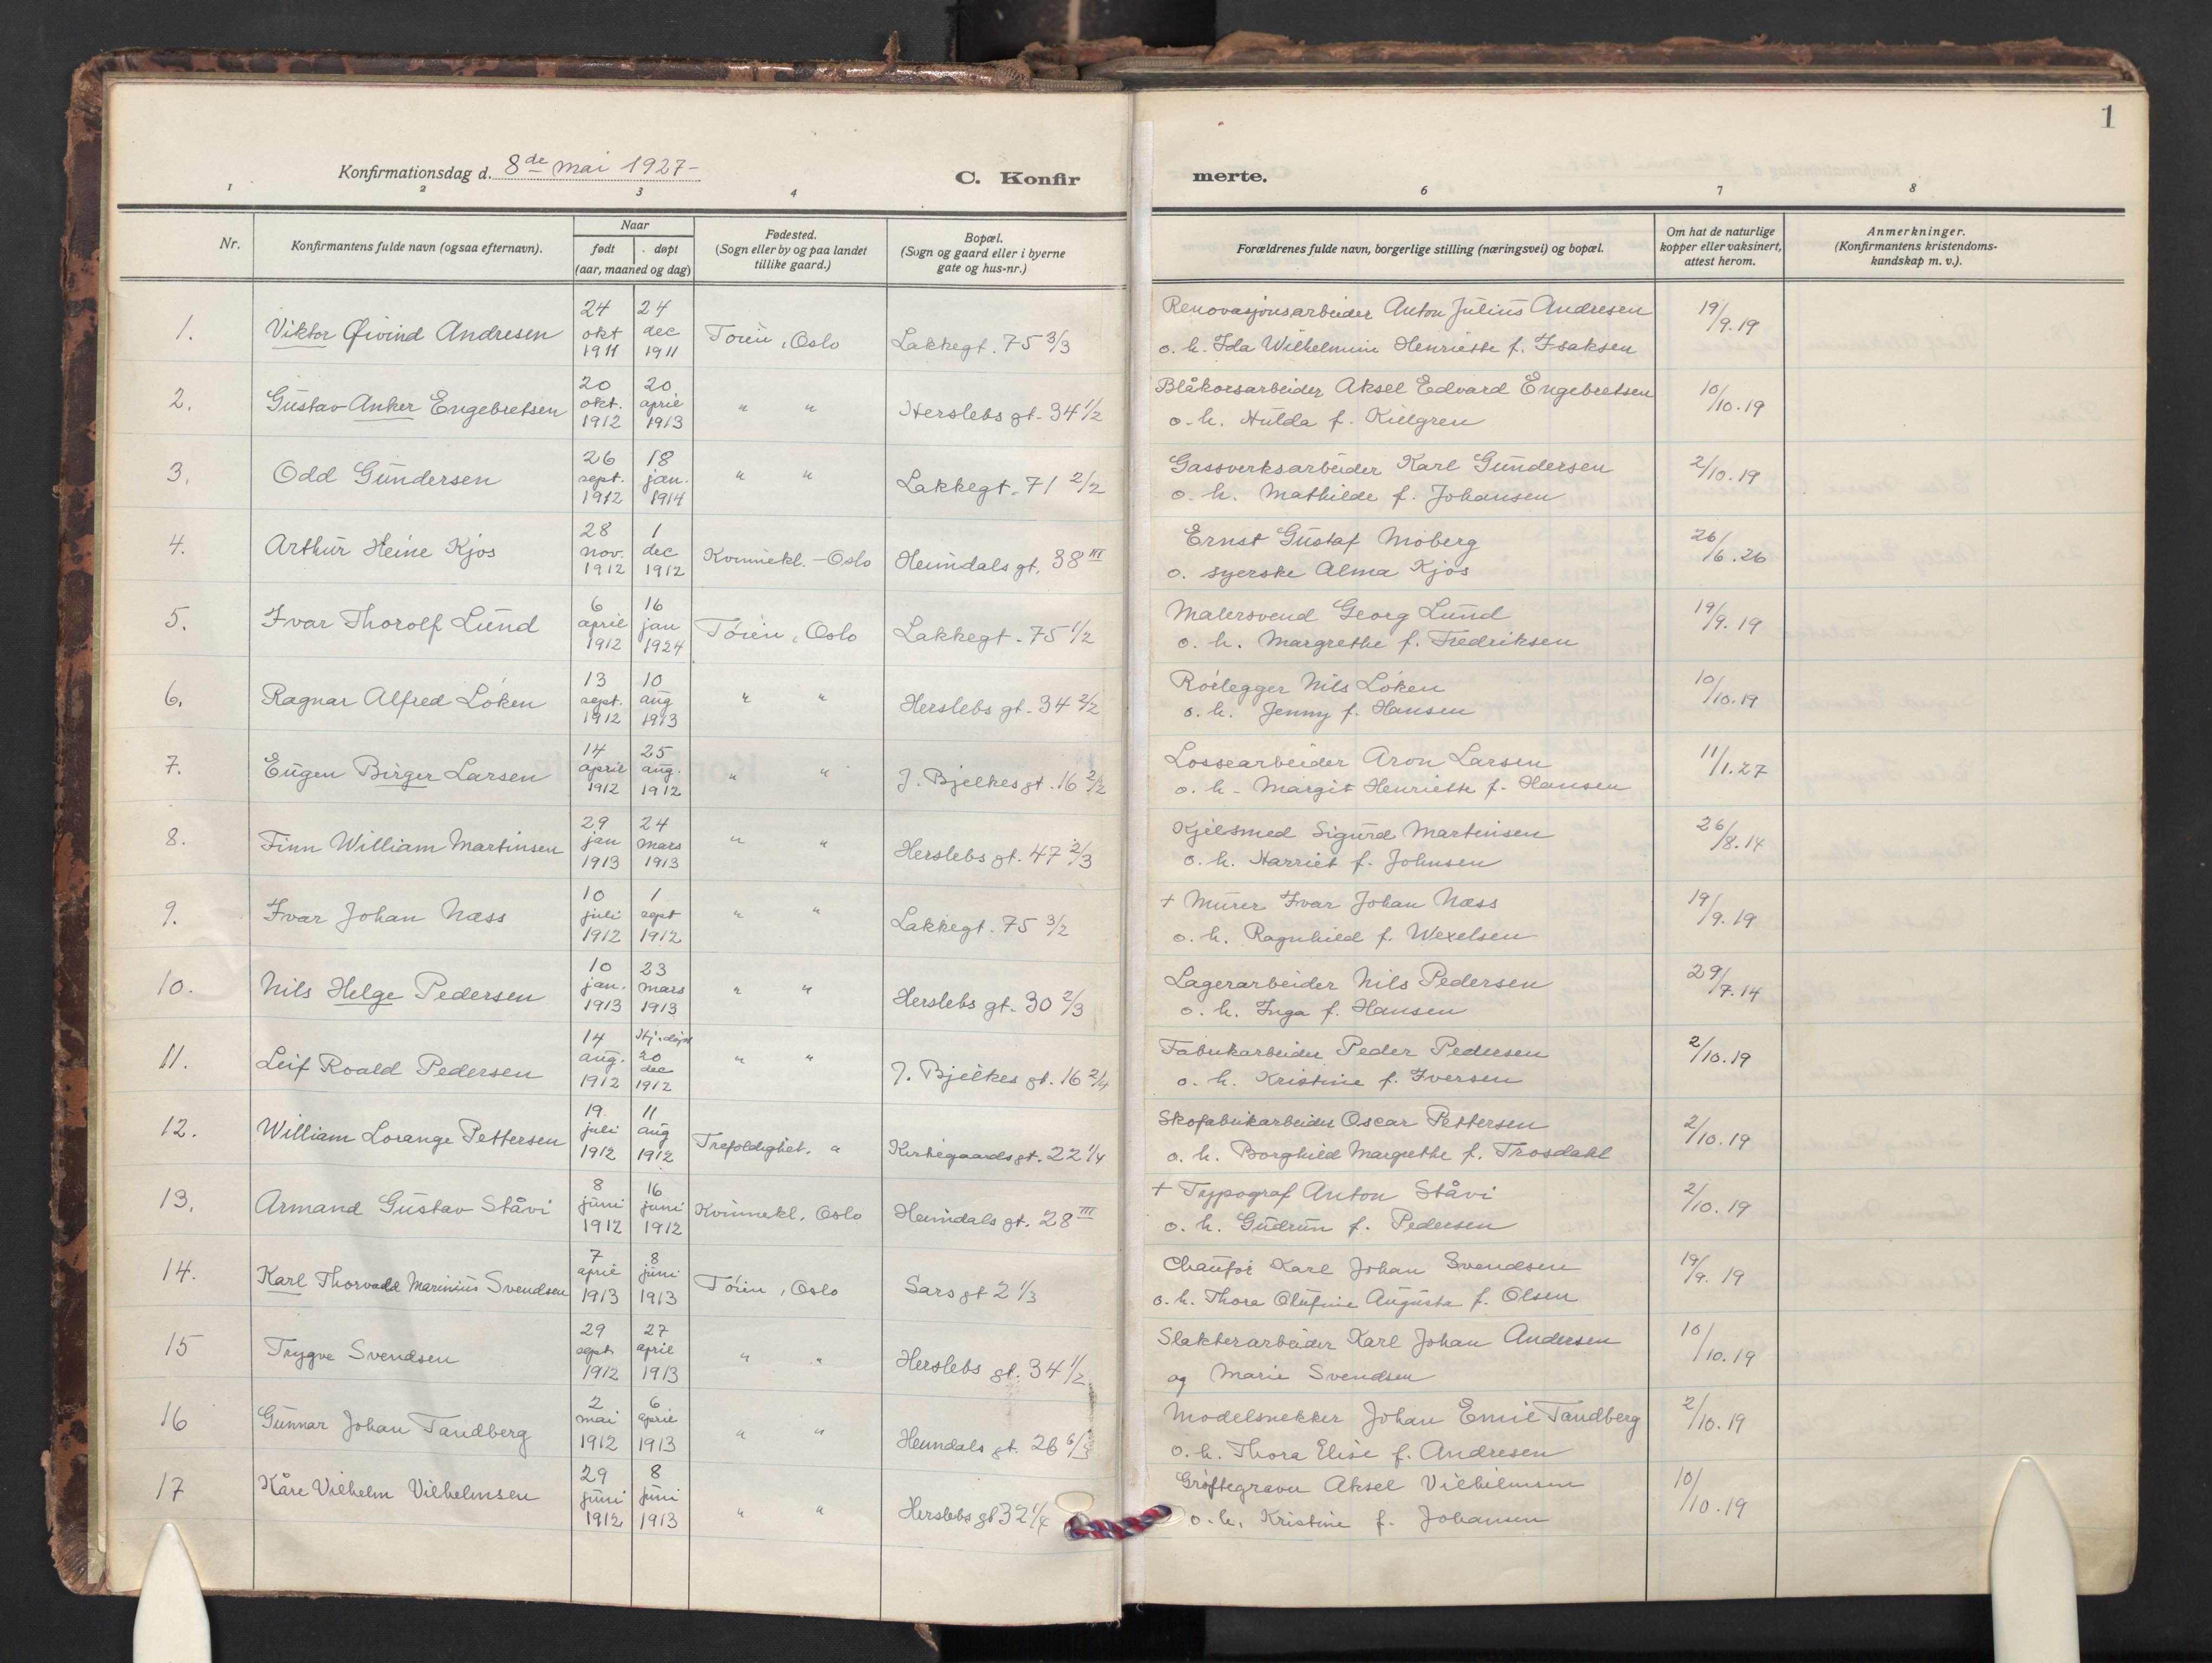 1
Konfirmationsdag d. 8de mai 1927-
C. Konfirmerte.
1 2 3 4 6 7 8
Nr.
Konfirmantens fulde navn (ogsaa efternavn).
Naar
født døpt
(aar, maaned og dag)
Fødested.
(Sogn eller by og paa landet
tillike gaard.)
Bopæl.
(Sogn og gaard eller i byerne
gate og hus-nr.)
Forældrenes fulde navn, borgerlige stilling (næringsvei) og bopæl.
Om hat de naturlige
kopper eller vaksinert,
attest herom.
Anmerkninger.
(Konfirmantens kristendoms-
kundskap m. v.).
1. Viktor Øivind Andresen 24 okt 1911 24 dec 1911 Tøien, Oslo Lakkegt. 75 3/3
Renovasjonsarbeider Anton Julius Andresen 19/9.19
o. h. Ida Wilhelmine Henriette f. Isaksen
2. Gustav Anker Engebretsen 20 okt. 1912 20 april 1913 " " Herslebs gt. 34 1/2
Blåkorsarbeider Aksel Edvard Engebretsen 10/10.19
o. h. Hulda f. Killgren
3. Odd Gundersen 26 sept. 1912 18 jan. 1914 " " Lakkegt. 71 2/2
Gassverksarbeider Karl Gundersen 2/10.19
o. h. Mathilde f. Johansen
4. Arthur Heine Kjos 28 nov. 1912 1 dec 1912 Kvinnekl. - Oslo Heimdals gt. 38 III
Ernst Gustaf Moberg 26/6.26
o. syerske Alma Kjos
5. Ivar Thorolf Lund 6 april 1912 16 jan 1924 Tøien, Oslo Lakkegt. 75 1/2
Malersvend Georg Lund 19/9.19
o. h. Margrethe f. Fredriksen
6. Ragnar Alfred Løken 13 sept. 1912 10 aug 1913 " " Herslebs gt. 34 2/2
Rørlegger Nils Løken 10/10.19
o. h. Jenny f. Hansen
7. Eugen Birger Larsen 14 april 1912 25 aug. 1912 " " J. Bjelkes gt. 16 2/2
Lossearbeider Aron Larsen 11/1.27
o. h. Margit Henriette f. Hansen
8. Finn William Martinsen 29 jan 1913 24 mars 1913 " " Herslebs gt. 47 2/3
Kjelsmed Sigurd Martinsen 26/8.14
o. h. Harriet f. Johnsen
9. Ivar Johan Næss 10 juli 1912 1 sept 1912 " " Lakkegt. 75 3/2
+ Murer Ivar Johan Næss 19/9.19
o. h. Ragnhild f. Wexelsen
10. Nils Helge Pedersen 10 jan. 1913 23 mars 1913 " " Herslebs gt. 30 2/3
Lagerarbeider Nils Pedersen 29/7.14
o. h. Inga f. Hansen
11. Leif Roald Pedersen 14 aug. 1912 Hj.døpt 20 dec 1912 " " J. Bjelkes gt. 16 2/4
Fabrikarbeider Peder Pedersen 2/10.19
o. h. Kristine f. Iversen
12. William Lorange Pettersen 19. juli 1912 11 aug 1912 Trefoldighet. " Kirkegaards gt. 22 1/4
Skofabrikarbeider Oscar Pettersen 2/10.19
o. h. Borghild Margrethe f. Trosdahl
13. Armand Gustav Ståvi 8 juni 1912 16 juni 1912 Kvinnekl, Oslo Heimdals gt. 28 III
+ Typograf Anton Ståvi 2/10.19
o. h. Gudrun f. Pedersen
14. Karl Thorvald Marinius Svendsen 7 april 1913 8 juni 1913 Tøien, Oslo Sars gt 2 1/3
Chaufør Karl Johan Svendsen 19/9.19
o. h. Thora Olufine Augusta f. Olsen
15 Trygve Svendsen 29 sept 1912 27 april 1913 " " Herslebs gt. 34 1/2
Slakterarbeider Karl Johan Andersen 10/10.19
og Marie Svendsen
16 Gunnar Johan Tandberg 2 mai 1912 6 april 1913 " " Heimdals gt. 26 6/3
Modelsnekker Johan Emil Tandberg 2/10.19
o. h. Thora Elise f. Andresen
17 Kåre Vilhelm Vilhelmsen 29 juni 1912 8 juni 1913 " " Herslebs gt 32 1/4
Grøftegraver Aksel Vilhelmsen 10/10.19
o. h. Kristine f. Johansen